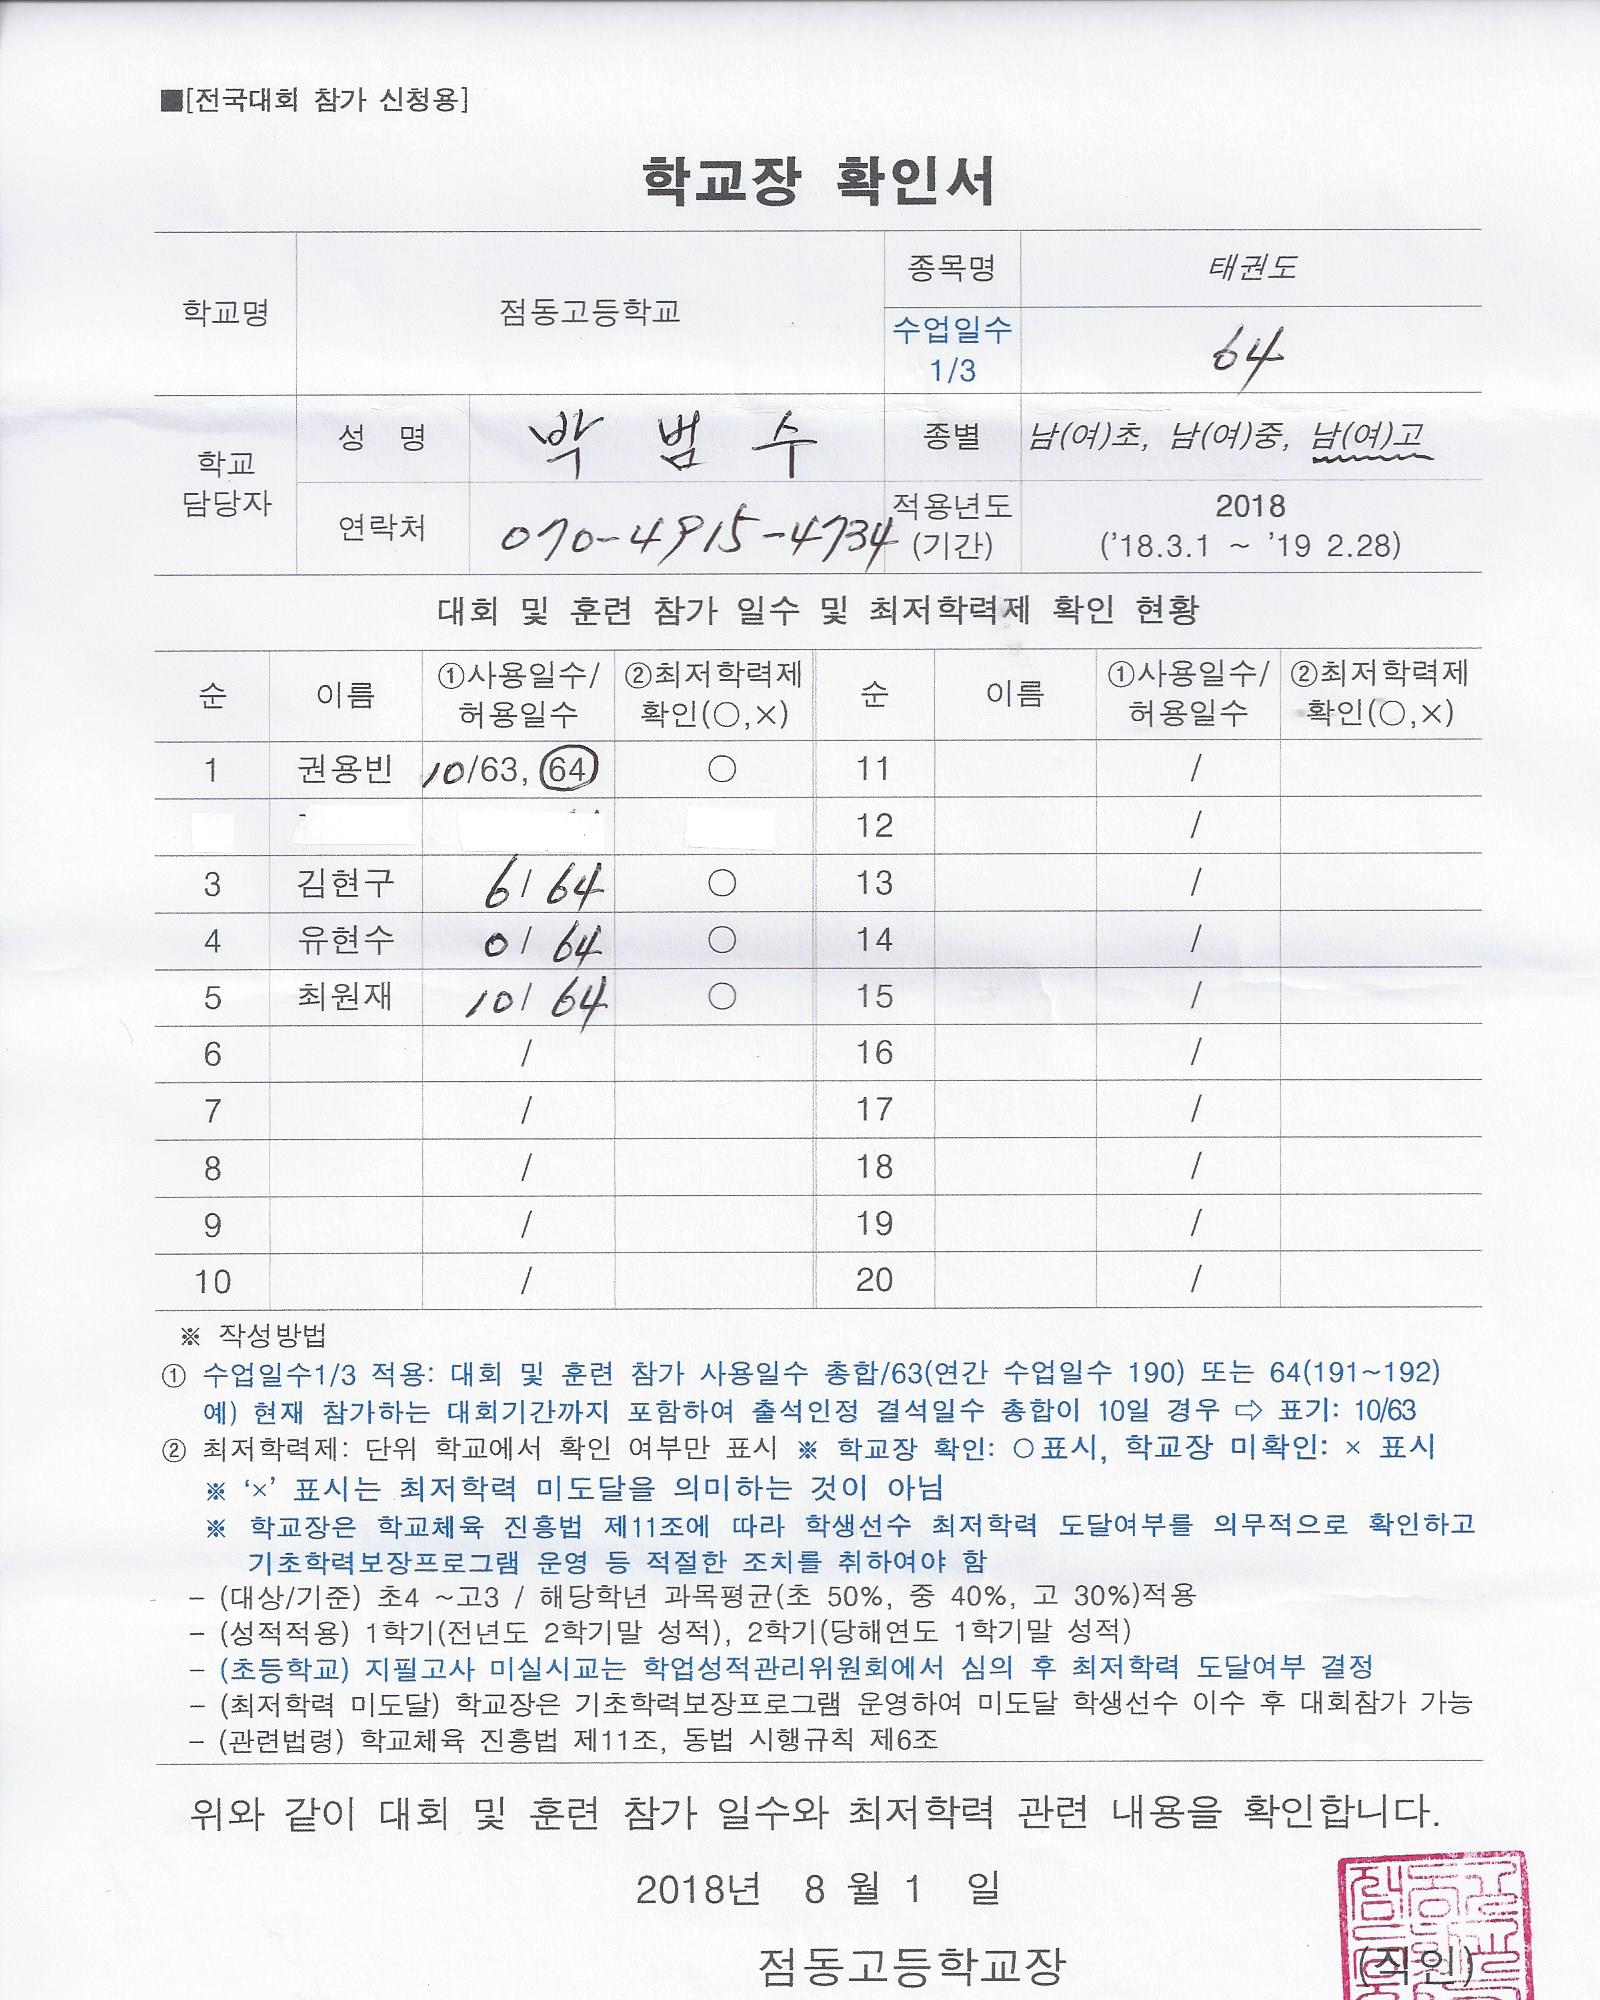 ■[전국대회 참가 신청용]
학교장 확인서
학교명 점동고등학교 종목명 태권도
수업일수 1/3 64
학교 담당자 성 명 박 범 수 종별 남(여)초, 남(여)중, 남(여)고
연락처 070-4915-4734 적용년도 (기간) 2018 ('18.3.1 ~ '19 2.28)
대회 및 훈련 참가 일수 및 최저학력제 확인 현황
순 이름 ①사용일수/허용일수 ②최저학력제 확인(○,×) 순 이름 ①사용일수/허용일수 ②최저학력제 확인(○,×)
1 권용빈 10/63, 64 ○ 11 /
12 /
3 김현구 6/ 64 ○ 13 /
4 유현수 0/ 64 ○ 14 /
5 최원재 10/ 64 ○ 15 /
6 / 16 /
7 / 17 /
8 / 18 /
9 / 19 /
10 / 20 /
※ 작성방법
① 수업일수1/3 적용: 대회 및 훈련 참가 사용일수 총합/63(연간 수업일수 190) 또는 64(191~192)
예) 현재 참가하는 대회기간까지 포함하여 출석인정 결석일수 총합이 10일 경우 ⇨ 표기: 10/63
② 최저학력제: 단위 학교에서 확인 여부만 표시 ※ 학교장 확인: ○표시, 학교장 미확인: × 표시
※ '×' 표시는 최저학력 미도달을 의미하는 것이 아님
※ 학교장은 학교체육 진흥법 제11조에 따라 학생선수 최저학력 도달여부를 의무적으로 확인하고
기초학력보장프로그램 운영 등 적절한 조치를 취하여야 함
- (대상/기준) 초4 ~고3 / 해당학년 과목평균(초 50%, 중 40%, 고 30%)적용
- (성적적용) 1학기(전년도 2학기말 성적), 2학기(당해연도 1학기말 성적)
- (초등학교) 지필고사 미실시교는 학업성적관리위원회에서 심의 후 최저학력 도달여부 결정
- (최저학력 미도달) 학교장은 기초학력보장프로그램 운영하여 미도달 학생선수 이수 후 대회참가 가능
- (관련법령) 학교체육 진흥법 제11조, 동법 시행규칙 제6조
위와 같이 대회 및 훈련 참가 일수와 최저학력 관련 내용을 확인합니다.
2018년 8 월 1 일
점동고등학교장 (직인)